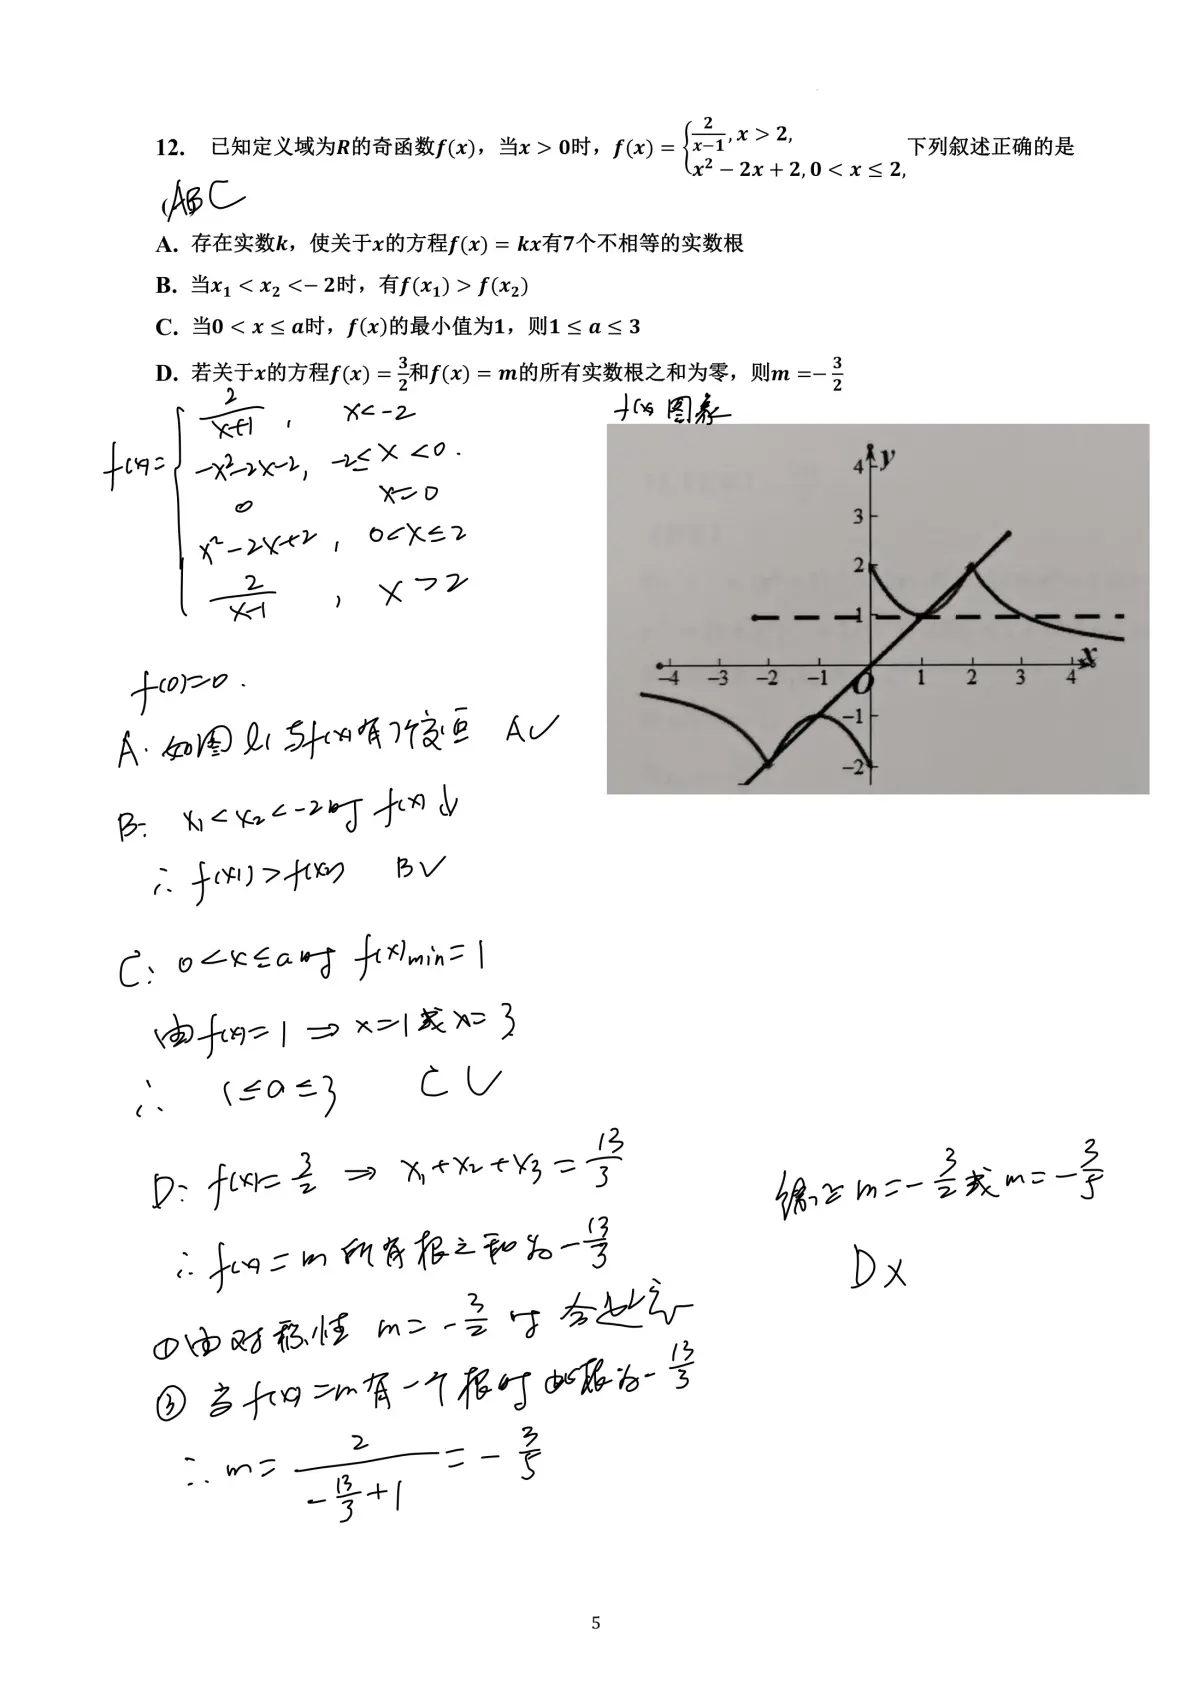 12. 已知定义域为R的奇函数f(x)，当x > 0时，f(x) = {2/(x−1), x > 2, x² − 2x + 2, 0 < x ≤ 2, 下列叙述正确的是
(ABC
A. 存在实数k，使关于x的方程f(x) = kx有7个不相等的实数根
B. 当x₁ < x₂ <− 2时，有f(x₁) > f(x₂)
C. 当0 < x ≤ a时，f(x)的最小值为1，则1 ≤ a ≤ 3
D. 若关于x的方程f(x) = 3/2和f(x) = m的所有实数根之和为零，则m =− 3/2
f(x)= { 2/(x+1), x<-2
-x²-2x-2, -2≤x<0.
0 x=0
x²-2x+2, 0<x≤2
2/(x-1), x>2
f(x)图象
4 y
3
2
1
-4 -3 -2 -1 O 1 2 3 4 x
-1
-2
f(0)=0.
A. 如图 l₁与f(x)有7个交点 A✓
B. x₁<x₂<-2时 f(x)↓
∴ f(x₁)>f(x₂) B✓
C: 0<x≤a时 f(x)min=1
由f(x)=1 ⇒ x=1或x=3
∴ 1≤a≤3 C✓
D: f(x)=3/2 ⇒ x₁+x₂+x₃=13/3
∴ f(x)=m所有根之和为-13/3
①由对称性 m=-3/2时 合题意
② 当f(x)=m有一个根时 此根为-13/3
∴ m= 2/(-13/3+1) = -3/5
综上 m=-3/2或m=-3/5
D×
5